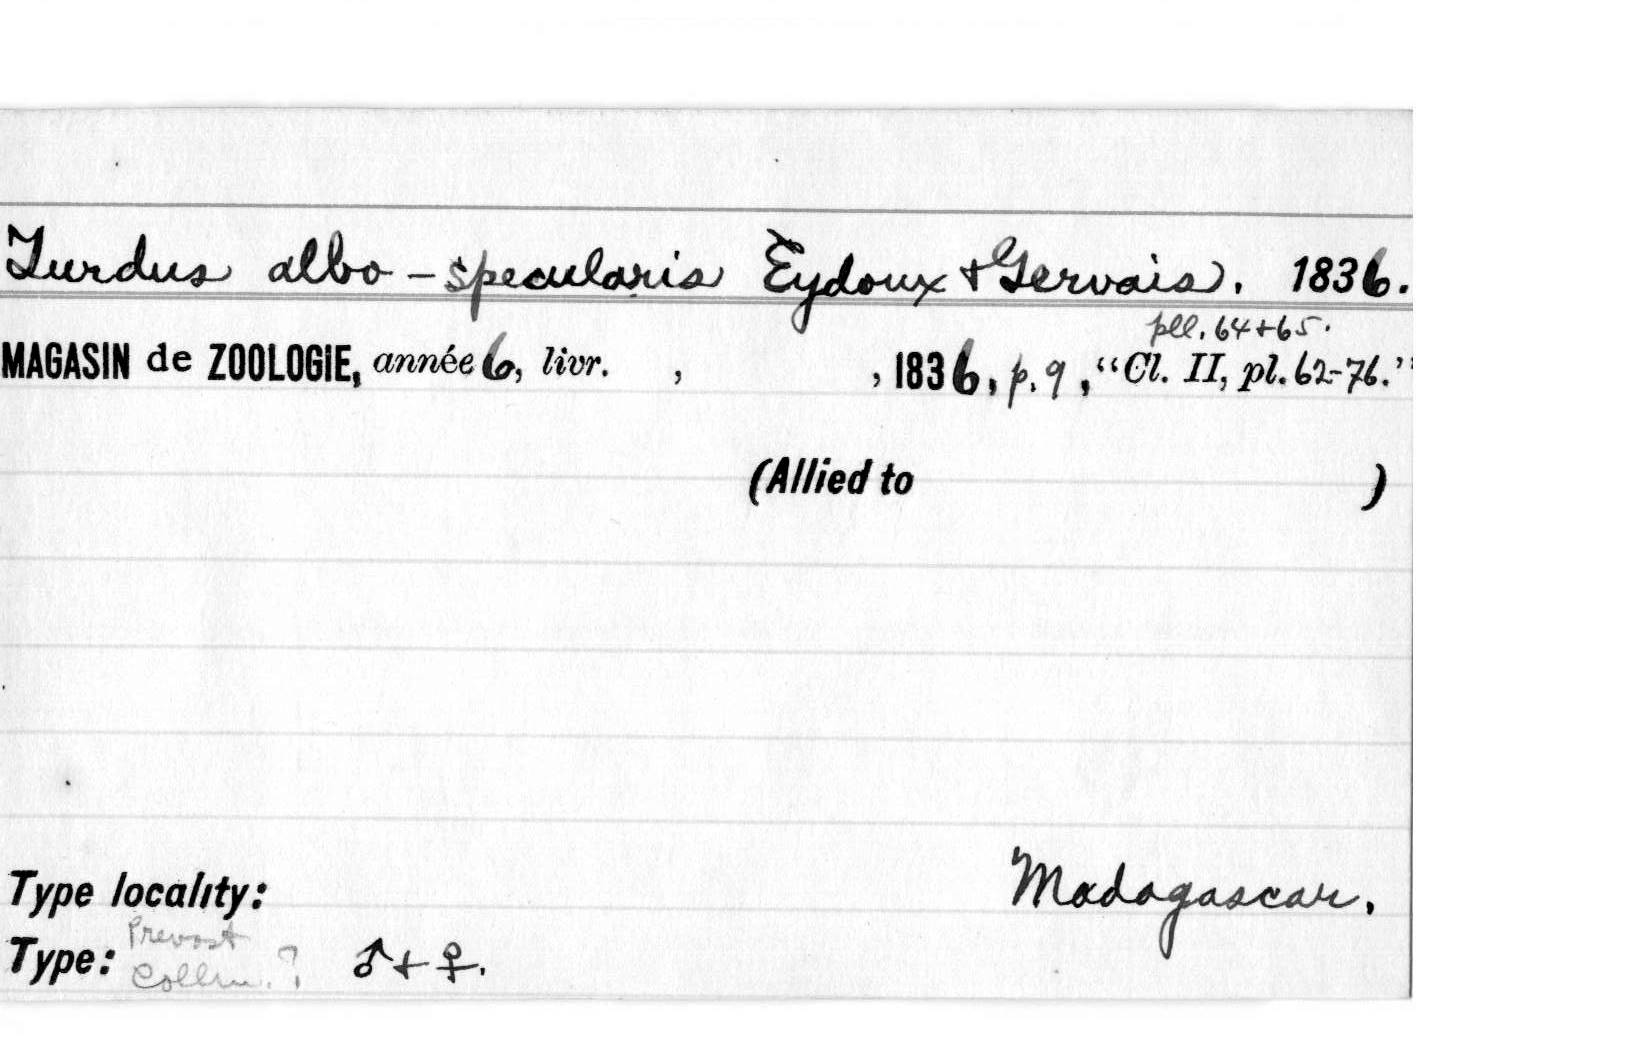 Turdus albo-specularis Eydoux + Gervais. 1836.
pll. 64+65.
MAGASIN de ZOOLOGIE, année 6, livr. , , 1836, p. 9, "Cl. II, pl. 62-76."
(Allied to )
Type locality: Madagascar.
Prevost
Type: Colln. ? ♂ + ♀.